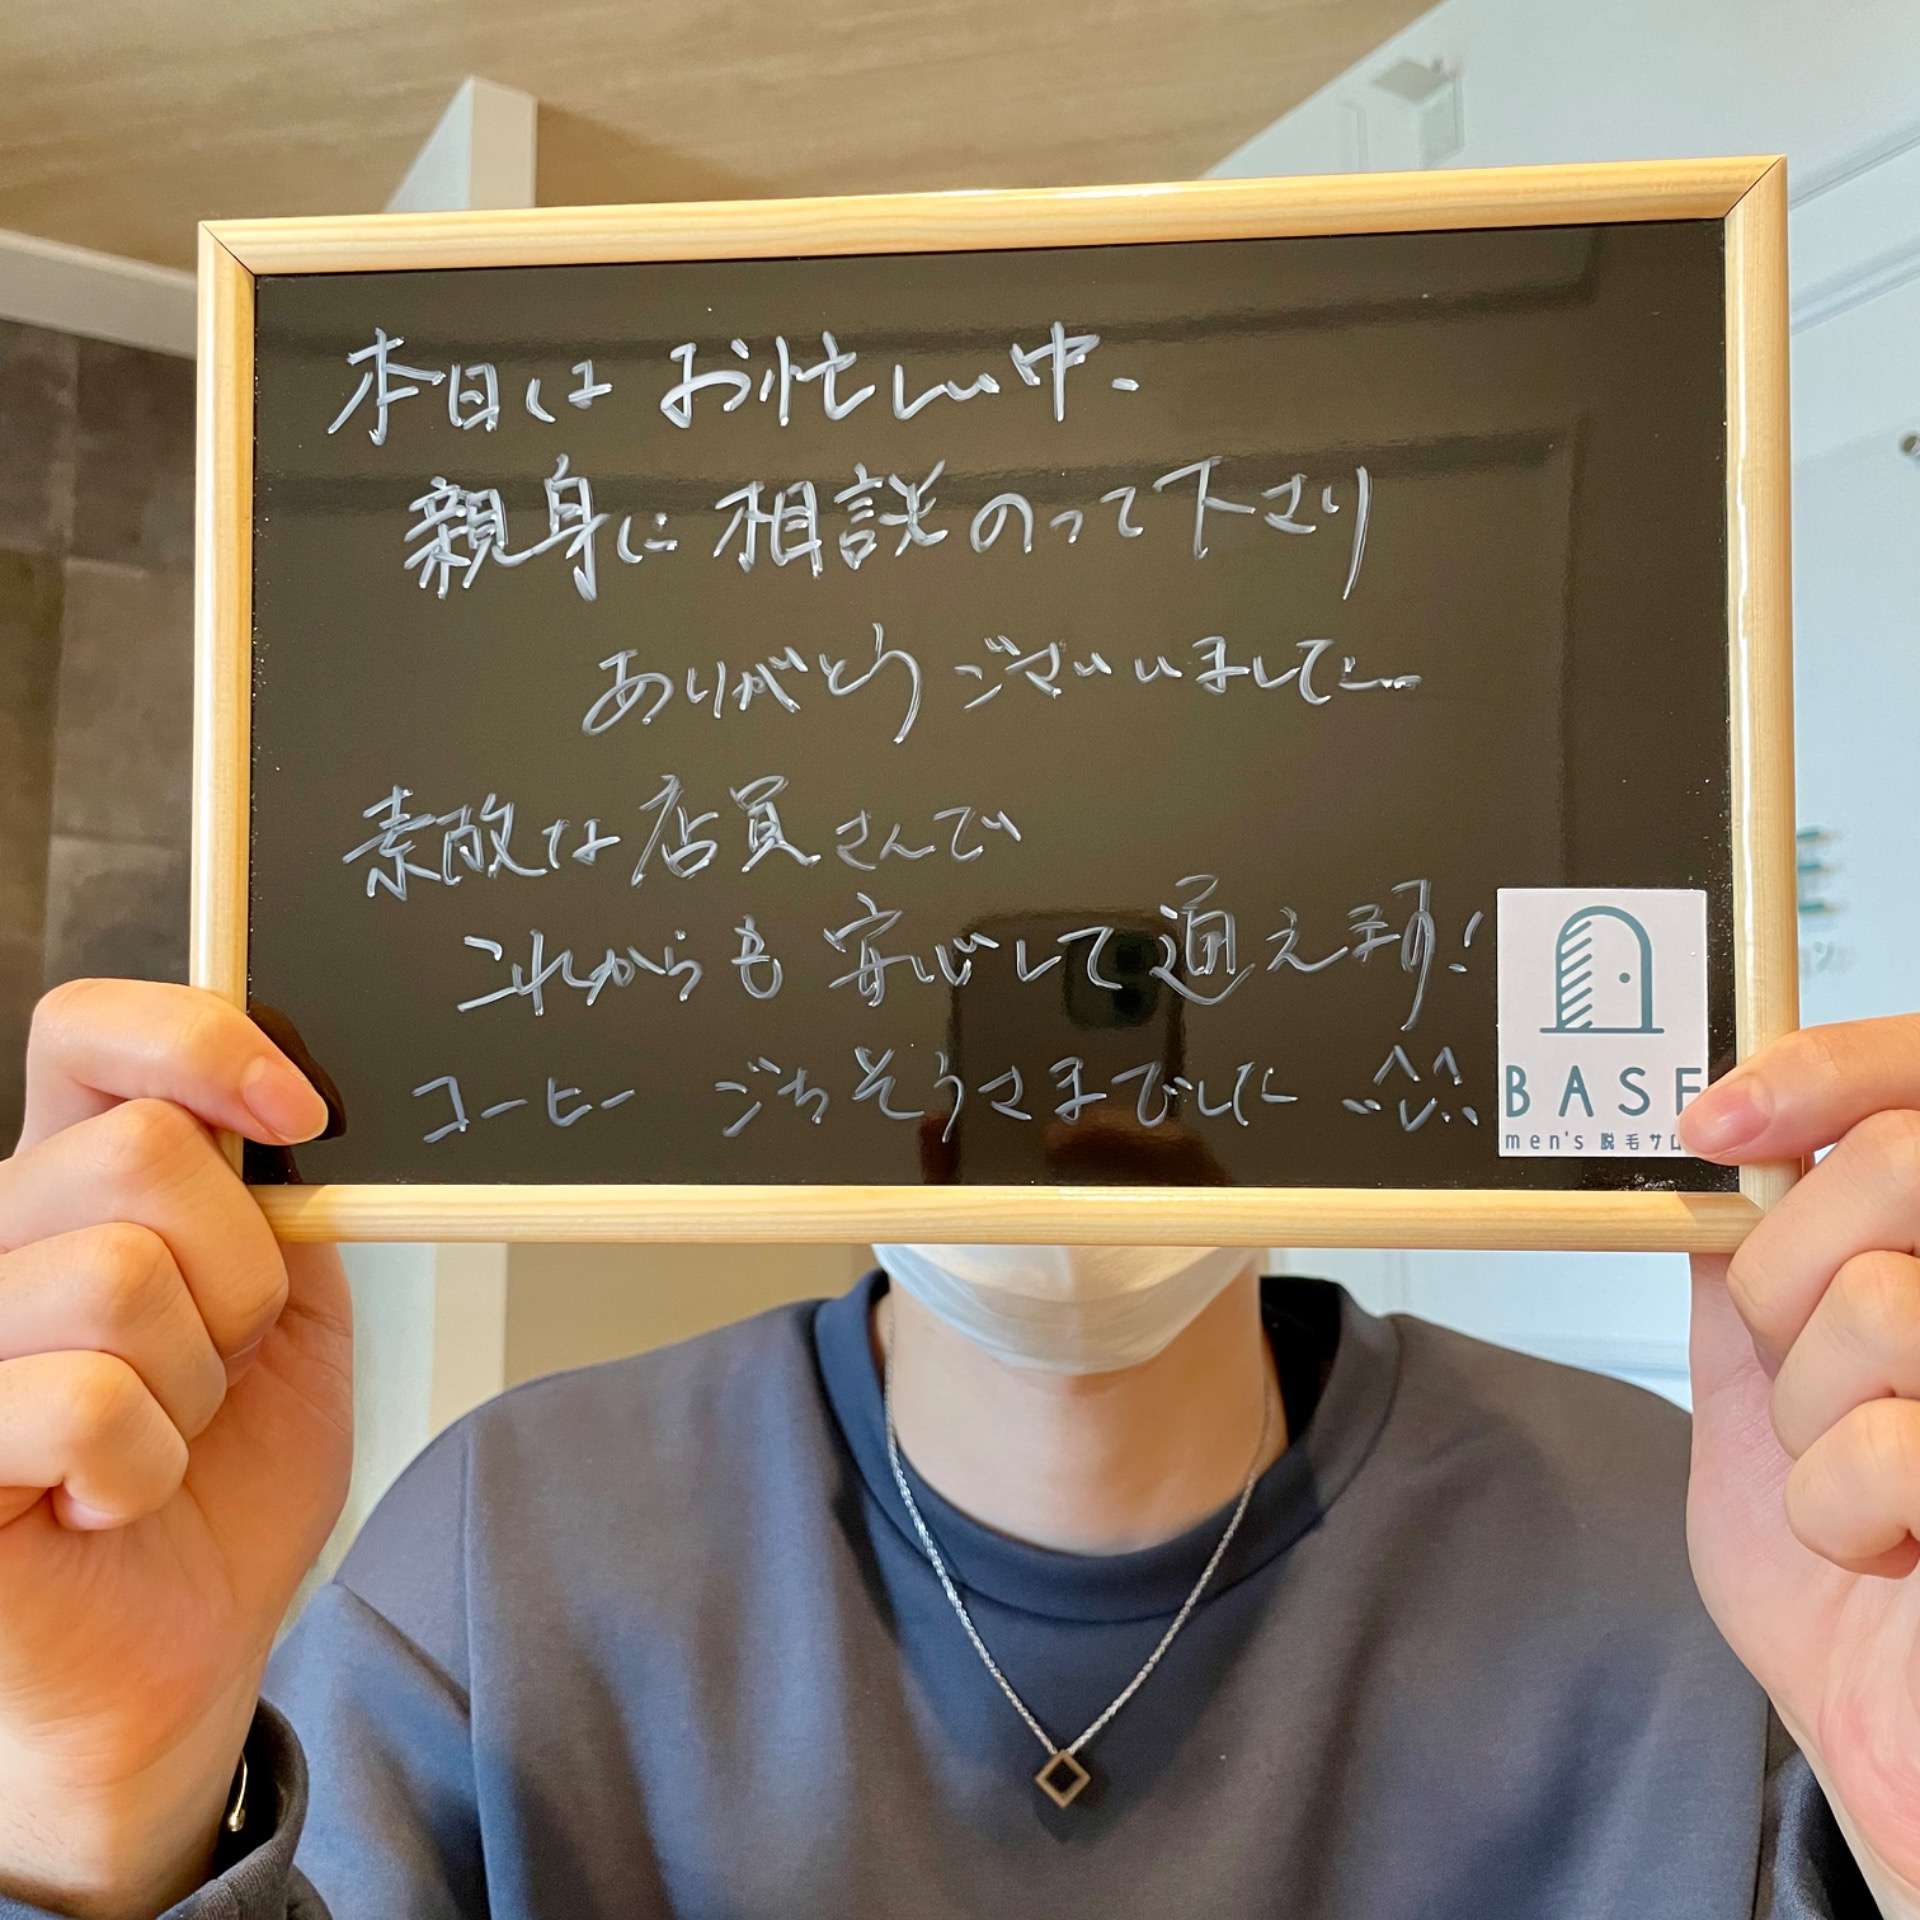 本日は お忙しい中、
親身に 相談のって下さり
ありがとう ございました
素敵な店員さんで
これからも 安心して通えます!
コーヒー ごちそうさまでした
BASE
men's 脱毛サロ